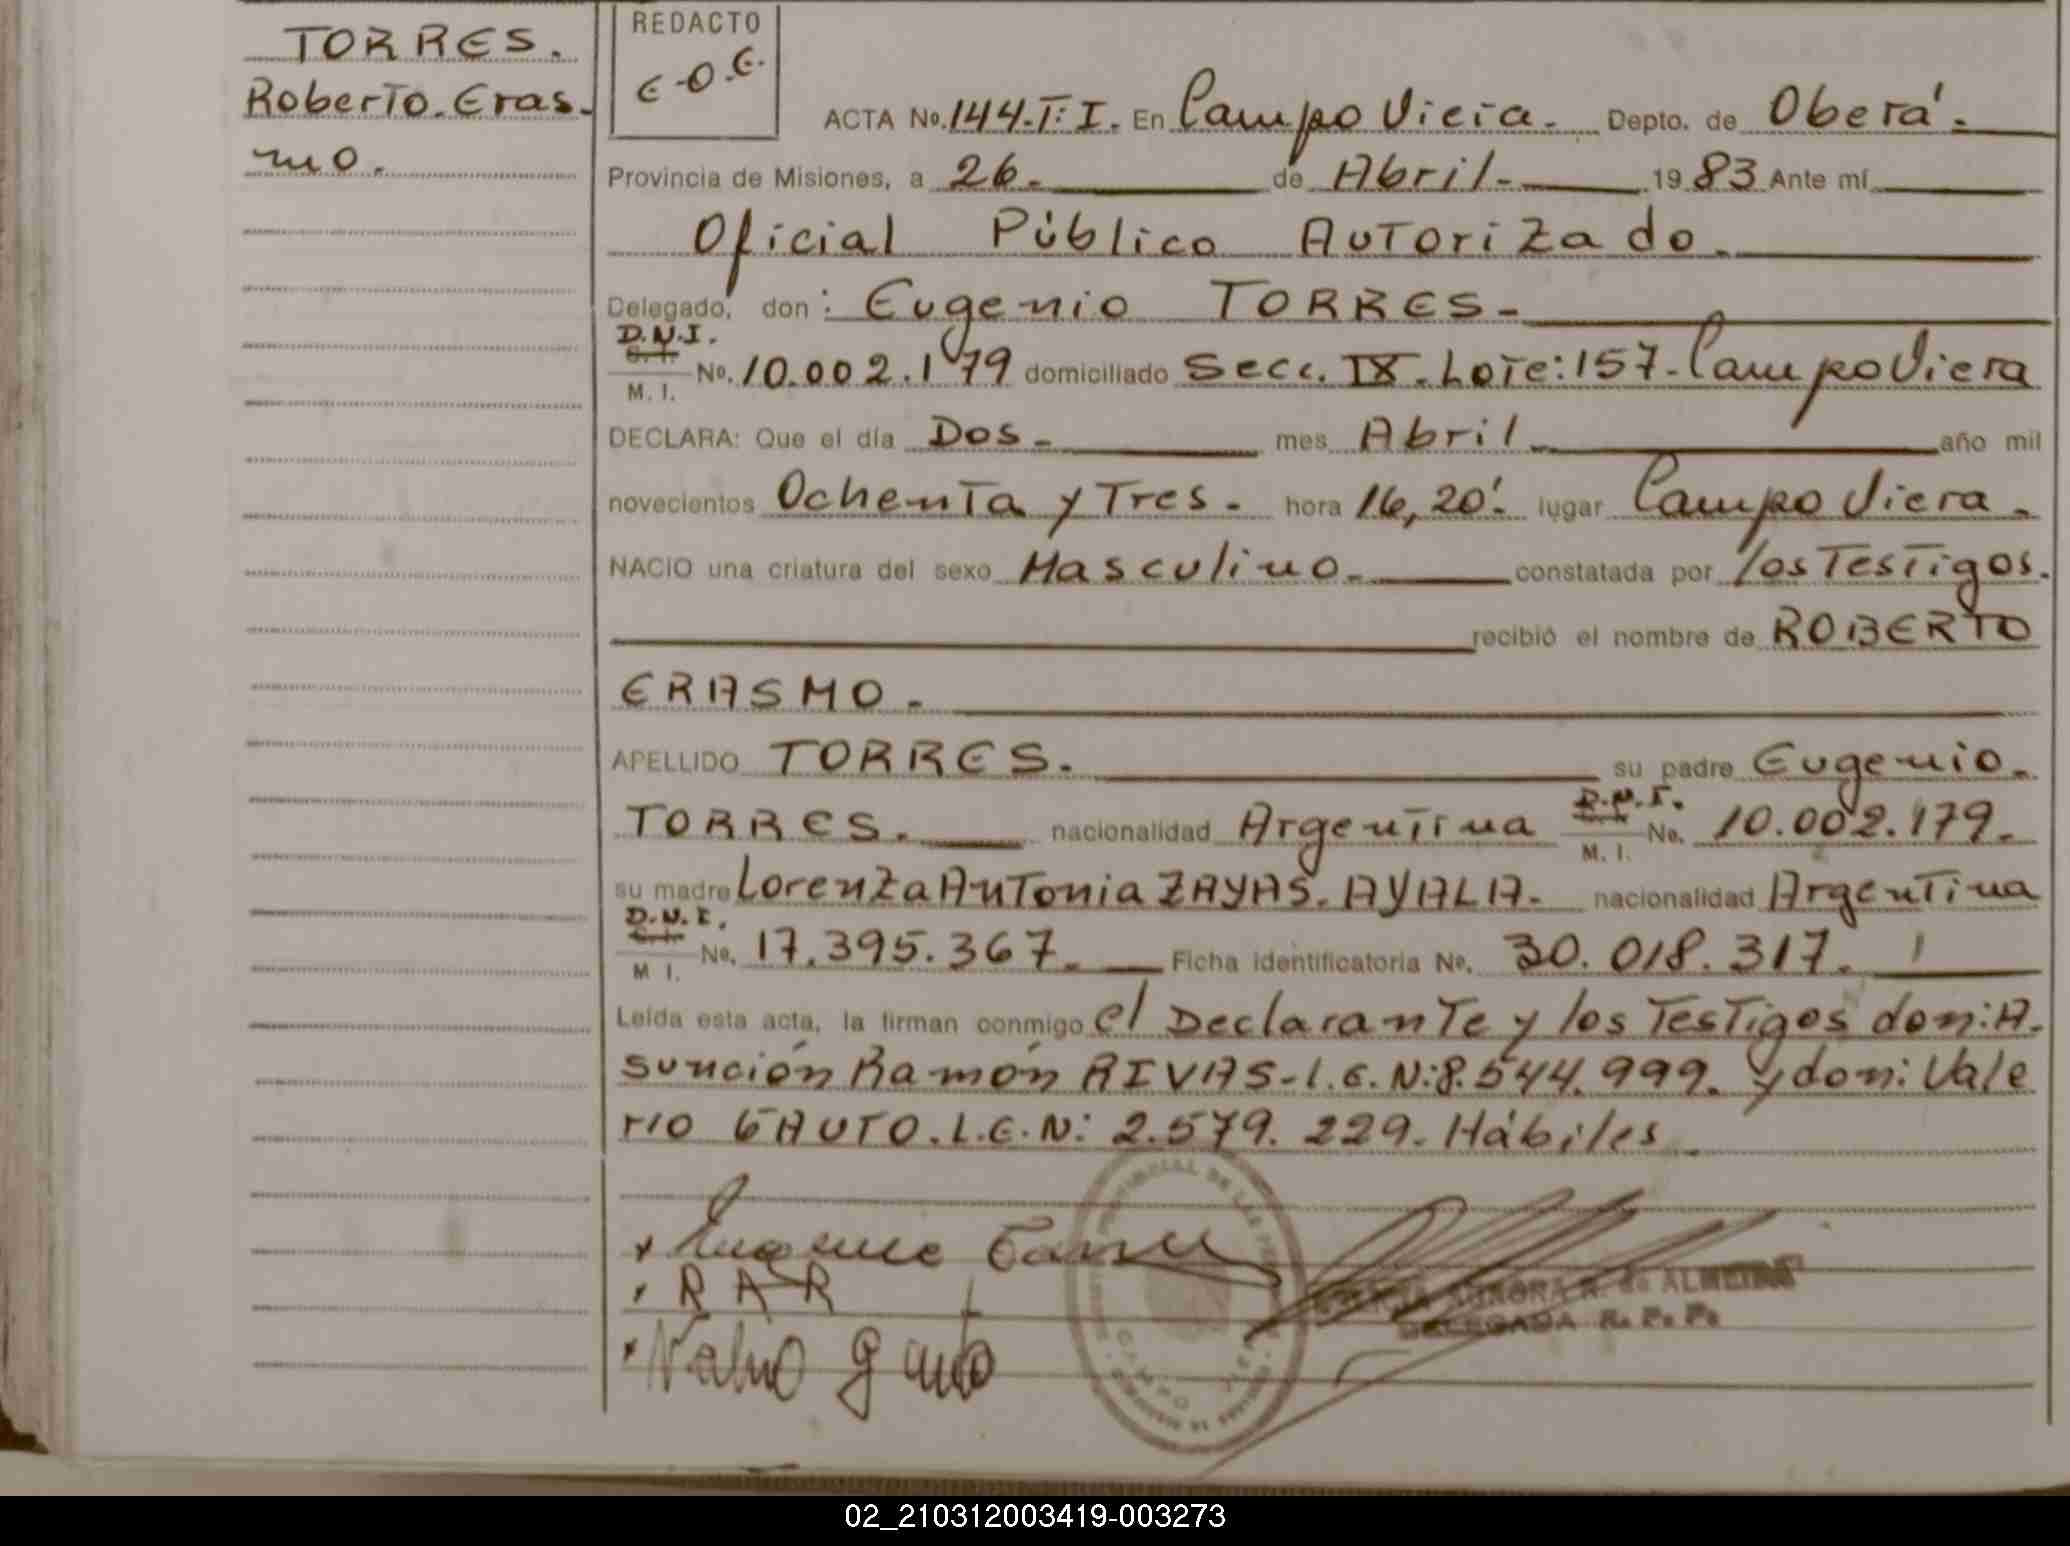 TORRES.
Roberto. Eras-
mo.
REDACTO
E-O.E.
ACTA No. 144. T: I. En Campo Viera. Depto. de Oberá.
Provincia de Misiones, a 26. de Abril. 1983 Ante mí
Oficial Público Autorizado.
Delegado, don: Eugenio TORRES.
D.N.I.
C. I.
M. I. No. 10.002.179 domiciliado Secc. IX. Lote: 157. Campo Viera
DECLARA: Que el día Dos. mes Abril. año mil
novecientos Ochenta y Tres. hora 16,20'. lugar Campo Viera.
NACIO una criatura del sexo Masculino. constatada por los Testigos.
recibió el nombre de ROBERTO
ERASMO.
APELLIDO TORRES. su padre Eugenio.
TORRES. nacionalidad Argentina D.N.I. C. I. M. I. No. 10.002.179.
su madre Lorenza Antonia ZAYAS. AYALA. nacionalidad Argentina
D.N.I.
C. I.
M I. No. 17.395.367. Ficha identificatoria No. 30.018.317.
Leída esta acta, la firman conmigo el Declarante y los Testigos don: A.
sunción Ramón RIVAS-L.E.N: 8.544.999. y don: Vale
rio GAUTO. L.E.N: 2.579.229. Hábiles
PROVINCIAL DE LAS
R A R
AURORA R. de ALMEIDA
DELEGADA R. P. P.
02_210312003419-003273